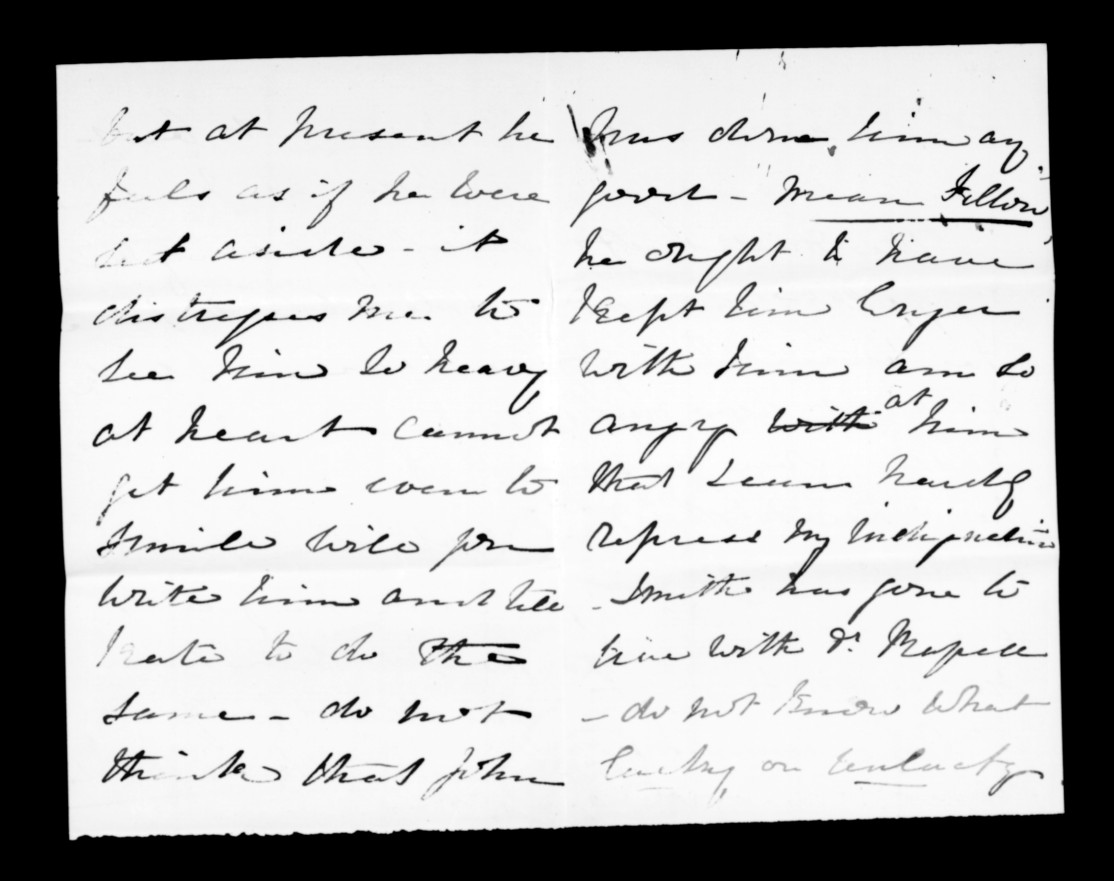 but at present he
feels as if he were
set aside - it
distresses me to
see him so heavy
at heart cannot
get him even to
smile will you
write him and tell
Kate to do the
same - do not
think that John
has done him any
good - mean Fellow,
he ought to have
kept him longer
with him am so
angry with at him
that I can hardly
repress my indignation
- Smith has gone to
live with Dr.
- do not know what
lucky or unlucky